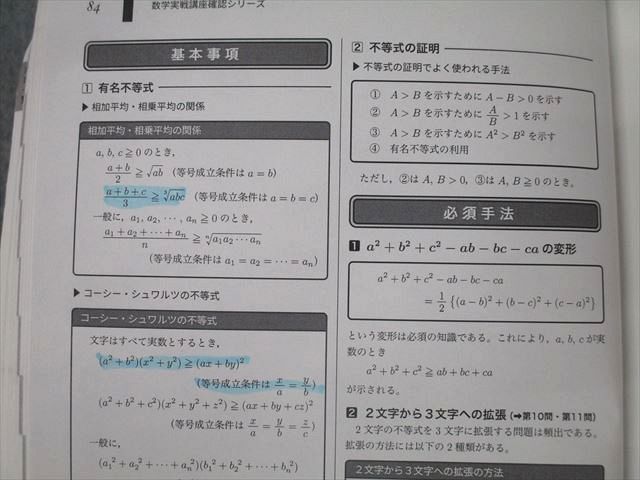 84
数学実戦講座確認シリーズ
基本事項
1 有名不等式
▶ 相加平均・相乗平均の関係
相加平均・相乗平均の関係
a, b, c ≧ 0 のとき,
(a+b)/2 ≧ √(ab) (等号成立条件は a = b)
(a+b+c)/3 ≧ ³√(abc) (等号成立条件は a = b = c)
一般に, a₁, a₂, ⋯, aₙ ≧ 0 のとき,
(a₁ + a₂ + ⋯ + aₙ)/n ≧ ⁿ√(a₁a₂⋯aₙ)
(等号成立条件は a₁ = a₂ = ⋯ = aₙ)
▶ コーシー・シュワルツの不等式
コーシー・シュワルツの不等式
文字はすべて実数とするとき,
(a² + b²)(x² + y²) ≧ (ax + by)²
(等号成立条件は x/a = y/b)
(a² + b² + c²)(x² + y² + z²) ≧ (ax + by + cz)²
(等号成立条件は x/a = y/b = z/c)
一般に,
(a₁² + a₂² + ⋯ + aₙ²)(b₁² + b₂² + ⋯ + bₙ²)
2 不等式の証明
▶ 不等式の証明でよく使われる手法
① A > B を示すために A − B > 0 を示す
② A > B を示すために A/B > 1 を示す
③ A > B を示すために A² > B² を示す
④ 有名不等式の利用
ただし, ②は A, B > 0, ③は A, B ≧ 0 のとき.
必須手法
1 a² + b² + c² − ab − bc − ca の変形
a² + b² + c² − ab − bc − ca
= 1/2 {(a − b)² + (b − c)² + (c − a)²}
という変形は必須の知識である. これにより, a, b, c が実
数のとき
a² + b² + c² ≧ ab + bc + ca
が示される.
2 2文字から3文字への拡張 (➡第10問・第11問)
2 文字の不等式を 3 文字に拡張する問題は頻出である.
拡張の方法には以下の 2 種類がある.
2文字から3文字への拡張の方法